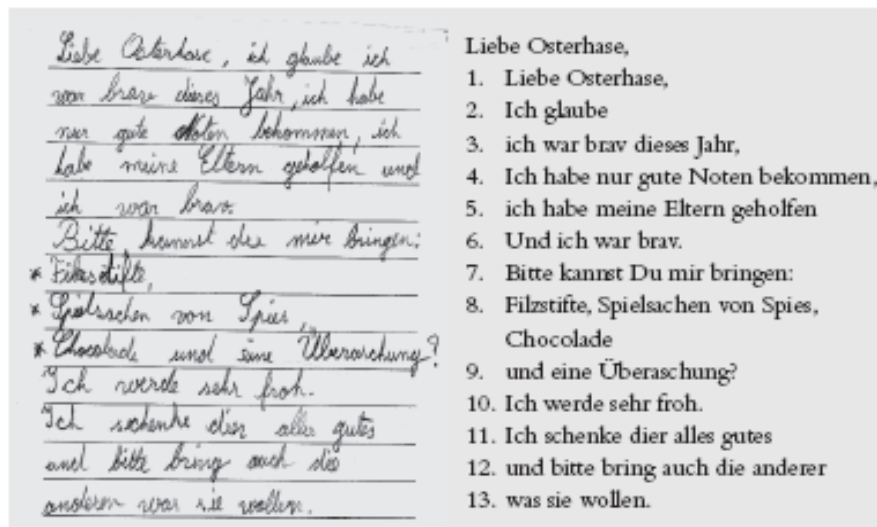 Liebe Osterhase, ich glaube ich
war brav dieses Jahr, ich habe
nur gute Noten bekommen, ich
habe meine Eltern geholfen und
ich war brav.
Bitte kannst du mir bringen:
*
* Spielsachen von Spies,
* Chocolade und eine Überaschung?
Ich werde sehr froh.
Ich schenke dier alles gutes
und bitte bring auch die
anderen was sie wollen.
Liebe Osterhase,
1. Liebe Osterhase,
2. Ich glaube
3. ich war brav dieses Jahr,
4. Ich habe nur gute Noten bekommen,
5. ich habe meine Eltern geholfen
6. Und ich war brav.
7. Bitte kannst Du mir bringen:
8. Filzstifte, Spielsachen von Spies,
Chocolade
9. und eine Überaschung?
10. Ich werde sehr froh.
11. Ich schenke dier alles gutes
12. und bitte bring auch die anderer
13. was sie wollen.